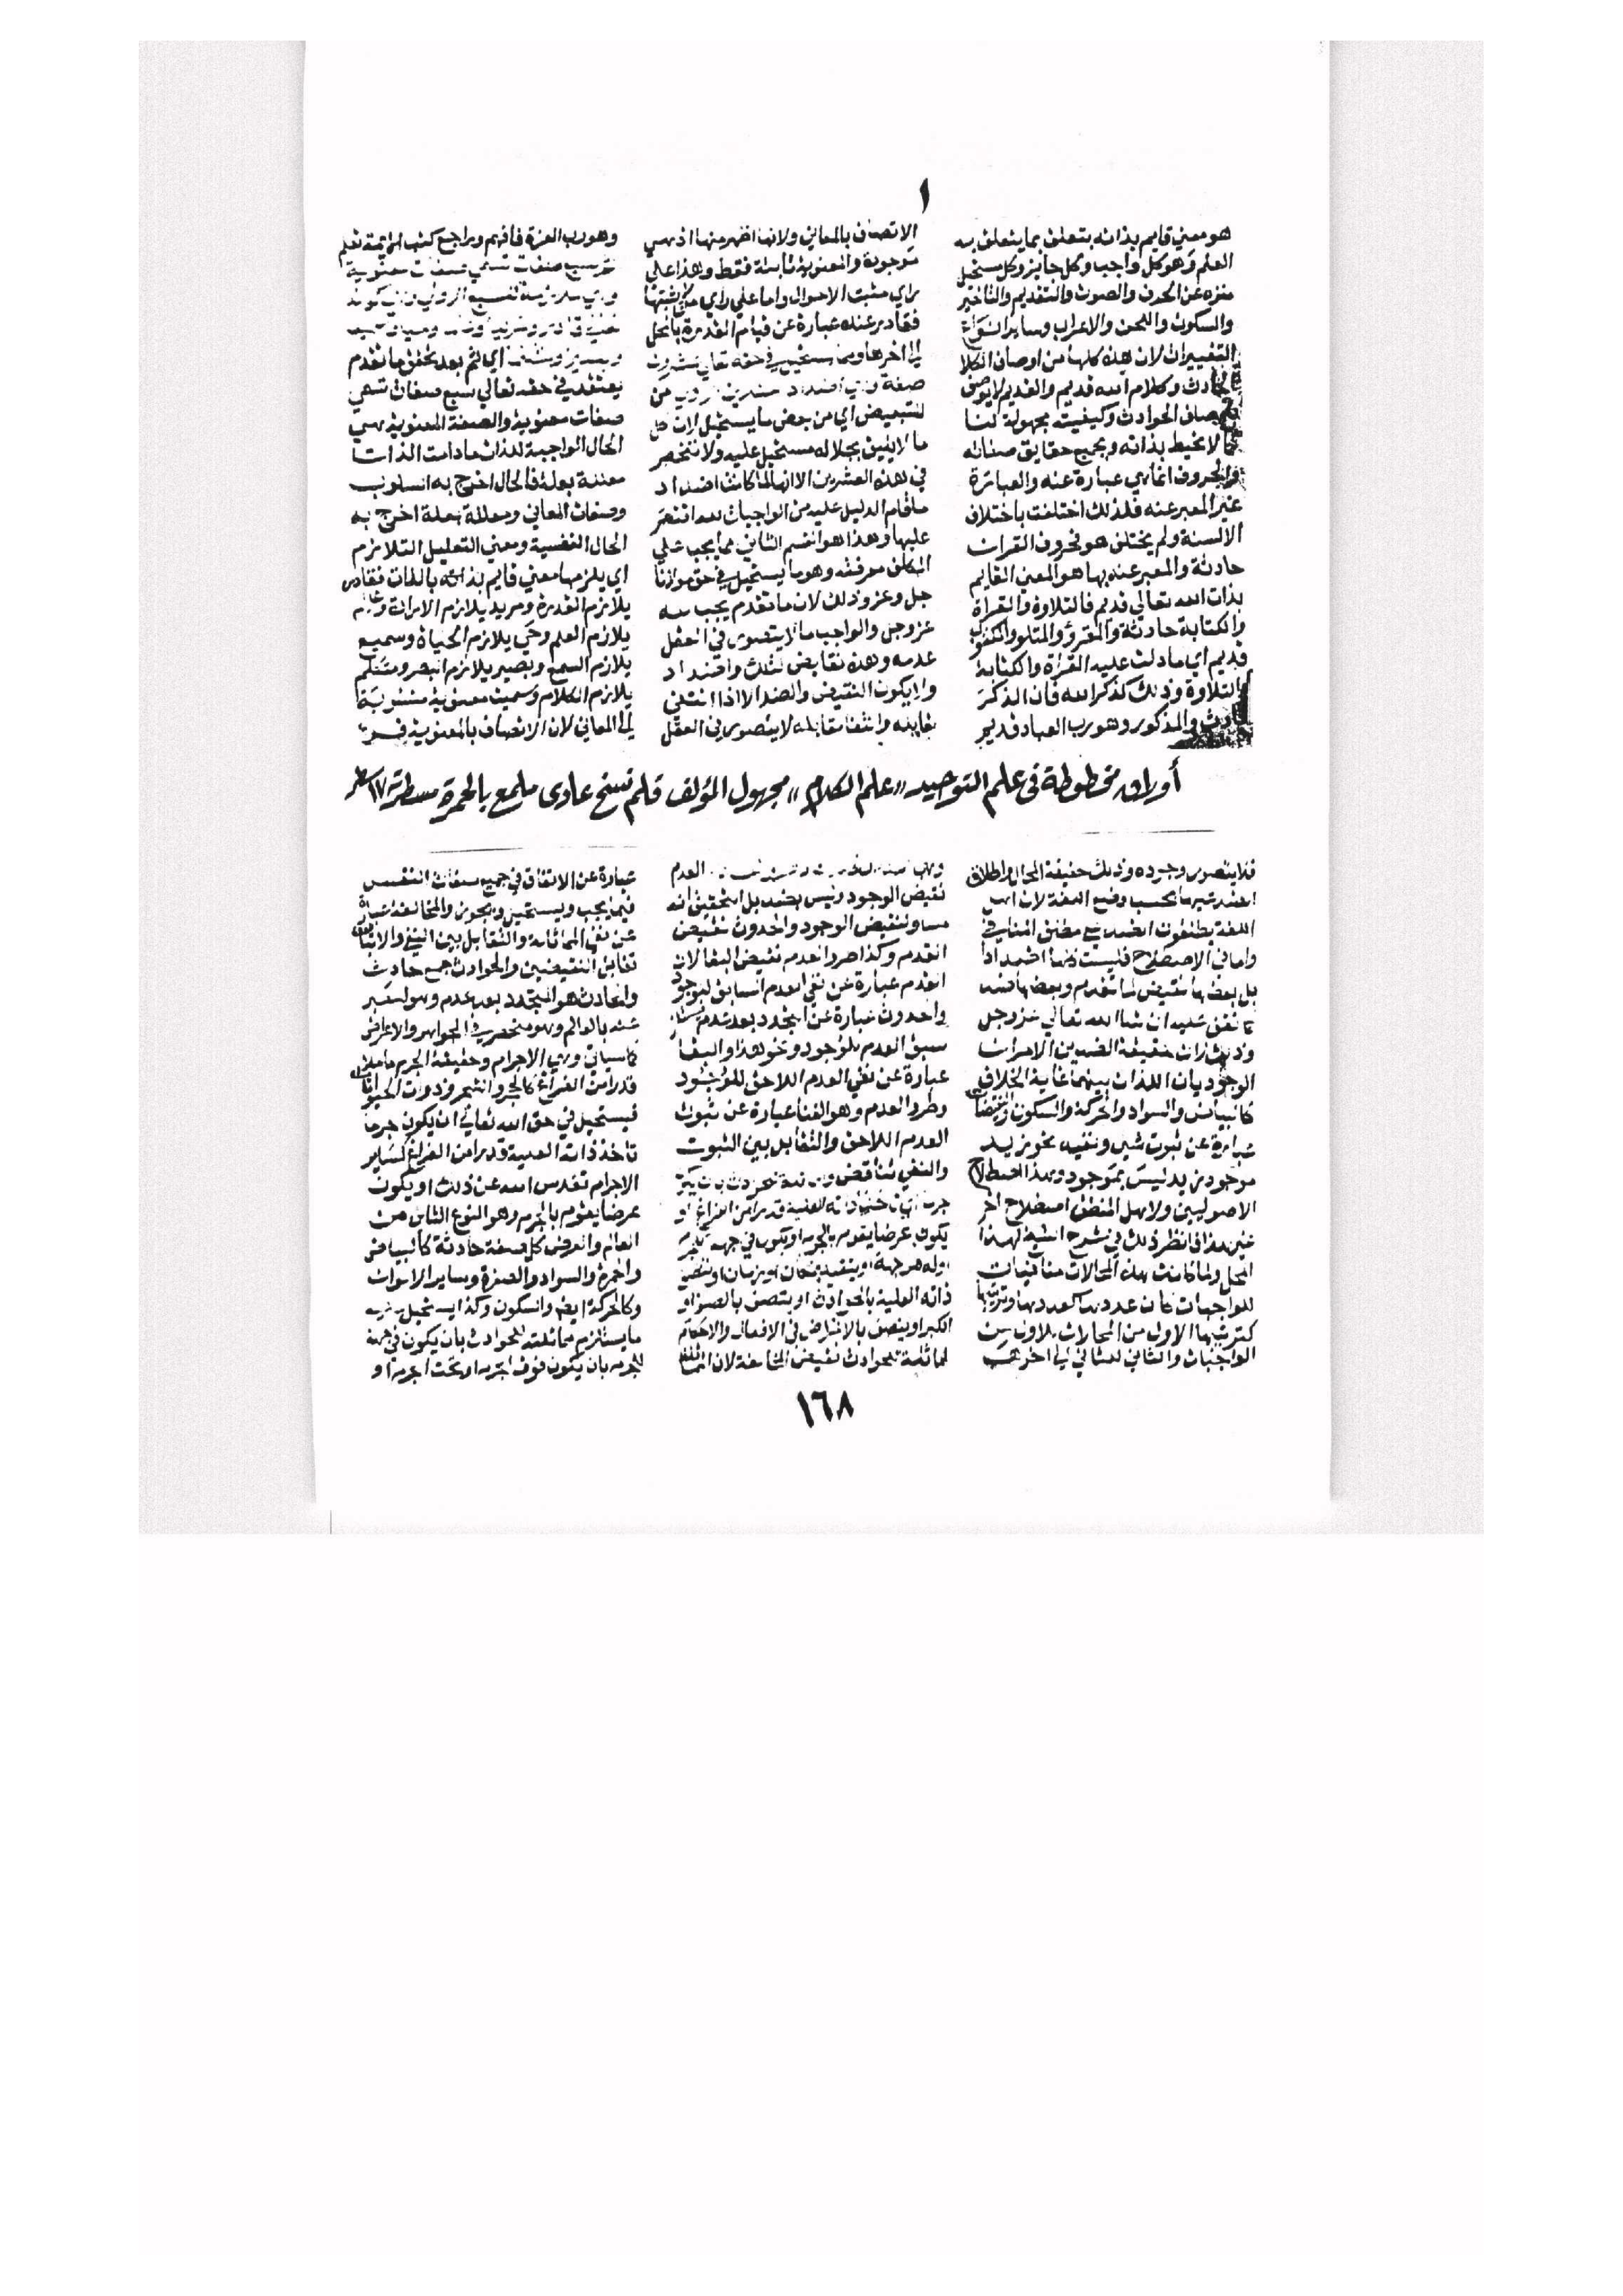 ١
هو معني قايم بذاته يتعلق بما يتعلق به
العلم وهو كل واجب وكل جايز وكل مستحيل
منزه عن الحرف والصوت والتقديم والتاخير
والسكوت واللحن والاعراب وساير انواع
التغييرات لان هذه كلها من اوصاف الكلا
الحادث وكلام الله قديم والقديم لايوصف
باوصاف الحوادث وكيفيته مجهولة لنا
كما لا نحيط بذاته وبجميع حقايق صفاته
والحروف انما هي عبارة عنه والعبارة
غير المعبر عنه فلذلك اختلفت باختلاف
الالسنة ولم يختلف هو فحروف القران
حادثة والمعبر عنه بها هو المعني القايم
بذات الله تعالي قديم فالتلاوة والقراة
والكتابة حادثة والمقروؤ والمتلو والمكتوب
قديم اي ما دلت عليه القراة والكتابة
والتلاوة وذلك كذكر الله فان الذكر
حادث والمذكور وهو رب العباد قديم
الاتصاف بالمعاني ولانها اظهر منها اذ هي
موجودة والمعنوية ثابتة فقط وهذا علي
راي مثبت الاحوال واما علي راي من لا يثبتها
فقادر عنده عبارة عن قيام القدرة بالمحل
الي اخرها ومما يستحيل في حقه تعالي عشرون
صفة وهي اضداد العشرين الاولي من
للتبعيض اي من بعض ما يستحيل لان كل
ما لا يليق بجلاله مستحيل عليه ولا تنحصر
في هذه العشرين الا انها لما كانت اضداد
ما قام الدليل عليه من الواجبات اقتصر
عليها وهذا هو القسم الثاني مما يجب علي
المكلف معرفته وهو ما يستحيل في حق مولانا
جل وعز وذلك لان ما تقدم يجب له
عز وجل والواجب ما لا يتصور في العقل
عدمه وهذه نقايض لتلك واضداد
ولا يكون النقيض والضد الا اذا انتفي
مقابله وانتفا مقابله لا يتصور في العقل
وهو رب العزة فافهم وراجع كتب الايمة تعلم
ثم سبع صفات تسمي صفات معنوية
وهي ملازمة للسبع الاولي وهي كونه
تعالي قادرا ومريدا
اي ثم بعد تحقق ما تقدم
يعتقد في حقه تعالي سبع صفات تسمي
صفات معنوية والصفة المعنوية هي
الحال الواجبة للذات ما دامت الذات
معللة بعلة فالحال اخرج به السلوب
وصفات المعاني ومعللة بعلة اخرج به
الحال النفسية ومعني التعليل التلازم
اي يلزمها معني قايم بالذات فقادر
يلازم القدرة ومريد يلازم الارادة وعالم
يلازم العلم وحي يلازم الحياة وسميع
يلازم السمع وبصير يلازم البصر ومتكلم
يلازم الكلام وسميت معنوية منسوبة
الي المعاني لان الاتصاف بالمعنوية فرع
أوراق مخطوطة فى علم التوحيد «علم الكلام» مجهول المؤلف قلم نسخ عادى ملمع بالحمرة مسطرة ١٧ سطر
فلا يتصور وجوده وذلك حقيقة المحال واطلاق
الضد عليها بحسب وضع اللغة لان اهل
اللغة يطلقون الضد علي مطلق المنافي
واما في الاصطلاح فليست كلها اضدادا
بل بعضها نقيض لما تقدم وبعضها ضد
كما نقف عليه ان شا الله تعالي عز وجل
وذلك ان حقيقة الضدين الامران
الوجوديان اللذان بينهما غاية الخلاف
كالبياض والسواد والحركة والسكون والنقيضان
عبارة عن ثبوت شي ونفيه نحو زيد
موجود زيد ليس بموجود وهذا اصطلاح
الاصوليين ولاهل المنطق اصطلاح اخر
غير هذا فانظر ذلك في شرح الشيخ لهذا
المحل ولما كانت هذه المحالات منافيات
للواجبات كان عددها كعددها وترتيبها
كترتيبها الاول من المحالات للاول من
الواجبات والثاني للثاني الي اخرها
العدم
نقيض الوجود وليس بضد بل التحقيق انه
مساو لنقيض الوجود والحدوث نقيض
القدم وكذا طرو العدم نقيض البقا لان
القدم عبارة عن نفي العدم السابق للوجود
والحدوث عبارة عن التجدد بعد عدم
سبق العدم للوجود ونحو هذا والبقا
عبارة عن نفي العدم اللاحق للوجود
وطرو العدم وهو الفنا عبارة عن ثبوت
العدم اللاحق والتقابل بين الثبوت
والنفي تناقض والمماثلة للحوادث بان يكون
جرما اي تاخذ ذاته العلية قدرا من الفراغ او
يكون عرضا يقوم بالجرم او يكون في جهة للجرم
او له هو جهة او يتقيد بمكان او زمان او تتصف
ذاته العلية بالحوادث او يتصف بالصغر او
الكبر او يتصف بالاغراض في الافعال والاحكام
المماثلة للحوادث نقيض المخالفة لان المماثلة
عبارة عن الاتفاق في جميع صفات النفس
فيما يجب ويستحيل ويجوز والمخالفة عبارة
عن نفي المماثلة والتقابل بين النفي والاثبات
تقابل النقيضين والحوادث جمع حادث
والحادث هو المتجدد بعد عدم وهو المعبر
عنه بالعالم وهو منحصر في الجواهر والاعراض
كما سياتي وهي الاجرام وحقيقة الجرم ما ملا
قدرا من الفراغ كالحجر والشجر وذوات الحيوانات
فيستحيل في حق الله تعالي ان يكون جرما
تاخذ ذاته العلية قدرا من الفراغ كساير
الاجرام تقدس الله عن ذلك او يكون
عرضا يقوم بالجرم وهو النوع الثاني من
العالم والعرض كل صفة حادثة كالبياض
والحمرة والسواد والصفرة وساير الالوان
وكالحركة ايضا والسكون وكذا يستحيل عليه
ما يستلزم مماثلته للحوادث بان يكون في جهة
للجرم بان يكون فوق الجرم او تحت الجرم او
١٦٨